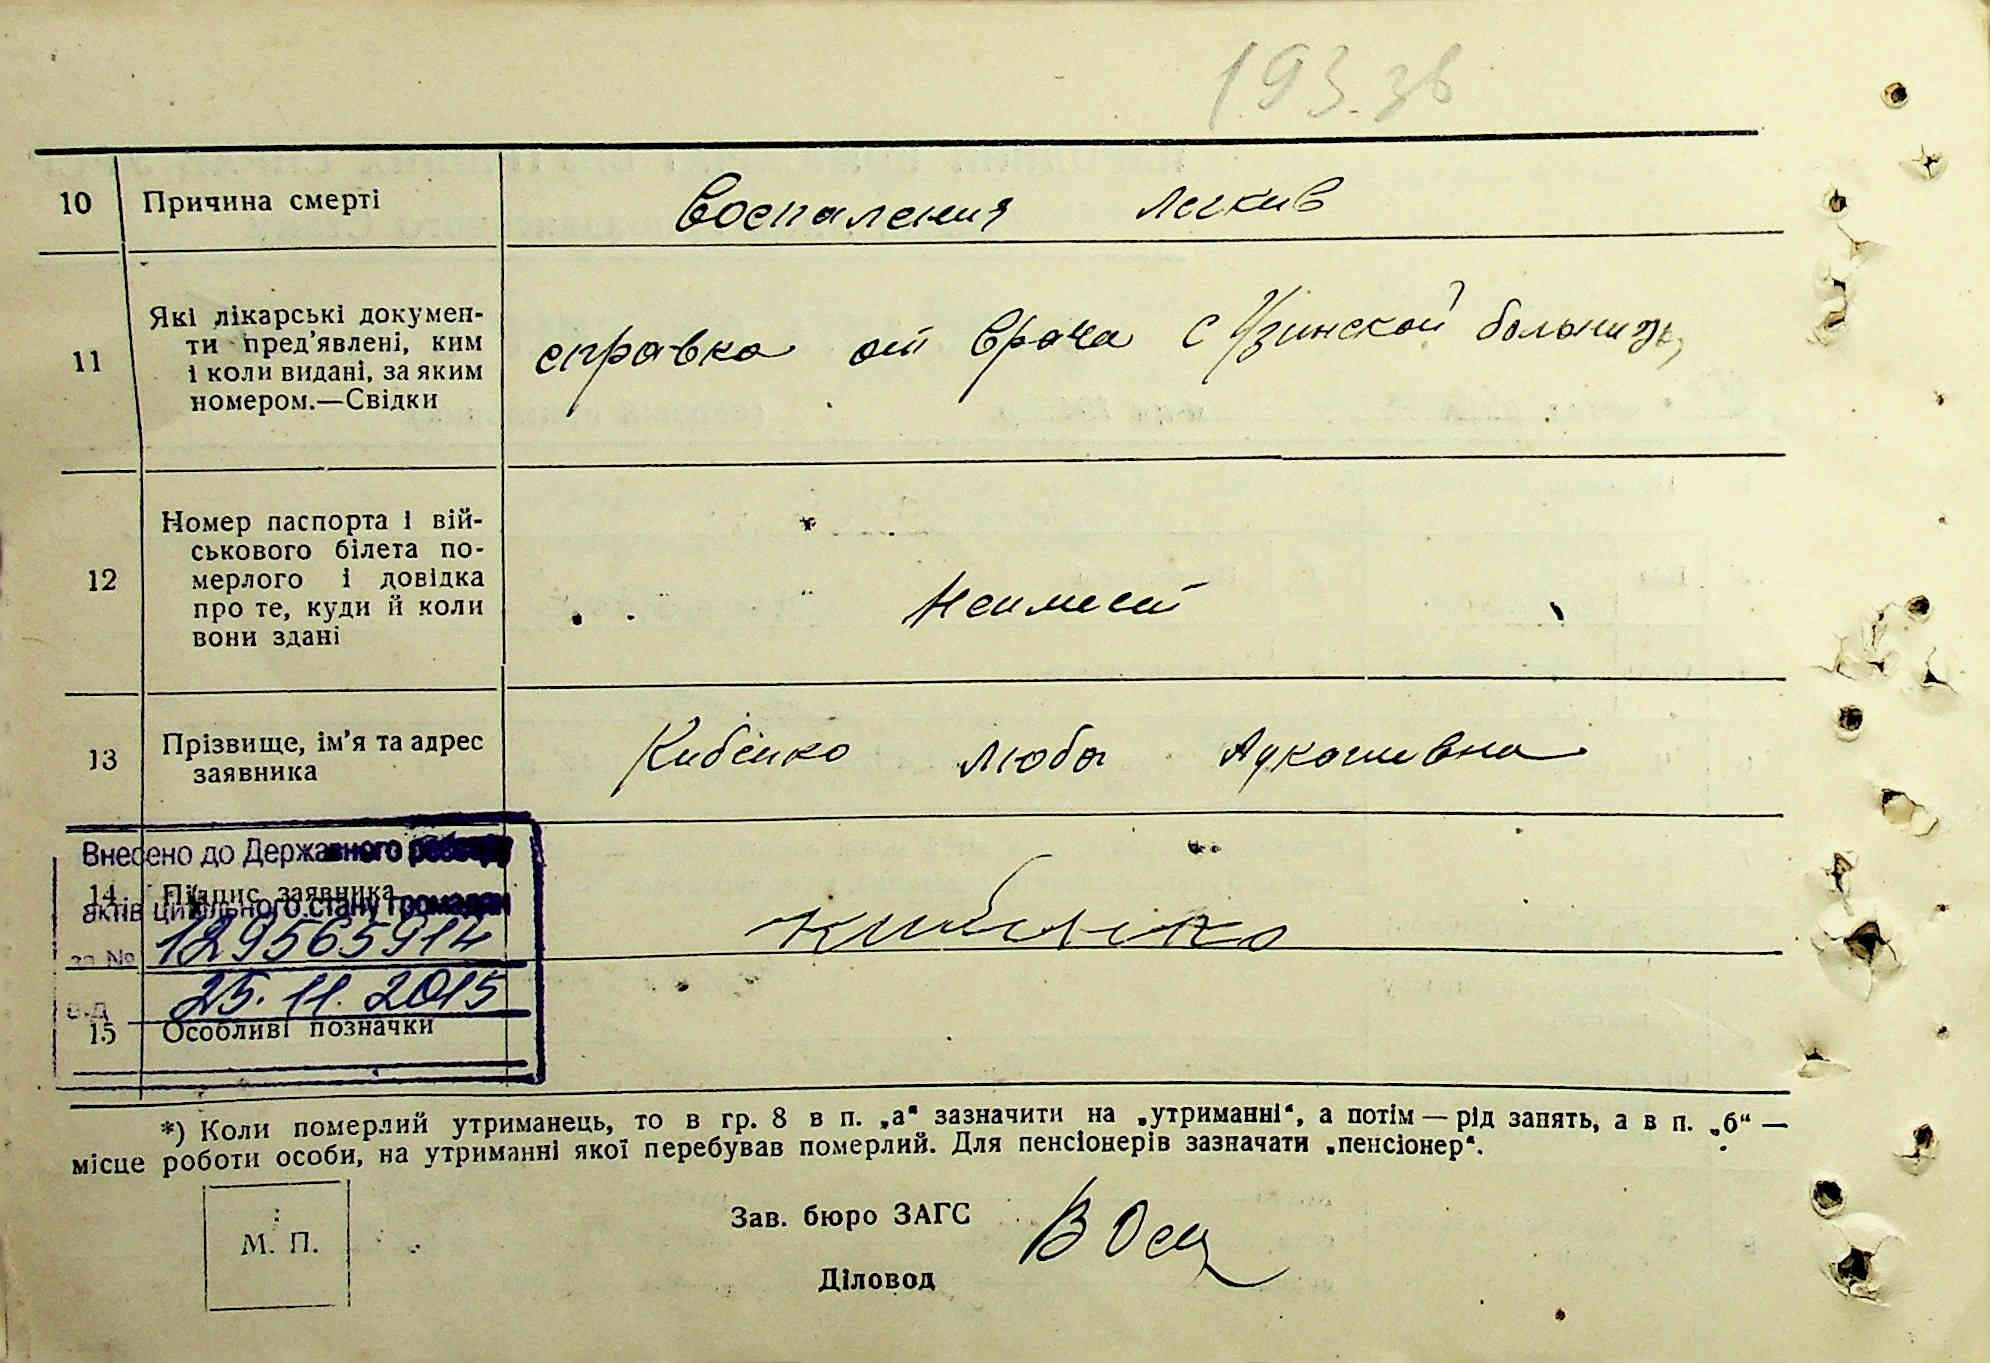 193 зв
10 Причина смерті Воспаления легкив
11 Які лікарські докумен-
ти пред'явлені, ким
і коли видані, за яким
номером.—Свідки
справка от врача с Узинской больницы
12 Номер паспорта і вій-
ськового білета по-
мерлого і довідка
про те, куди й коли
вони здані
Неимеет
13 Прізвище, ім'я та адрес
заявника
Кибенко Люба Лукашивна
Внесено до Державного реєстру
14 Підпис заявника Кибенко
актів цивільного стану громадян
за № 129565914
від 25.11.2015
15 Особливі позначки
*) Коли померлий утриманець, то в гр. 8 в п. „а" зазначити на „утриманні", а потім — рід занять, а в п. „б" —
місце роботи особи, на утриманні якої перебував померлий. Для пенсіонерів зазначати „пенсіонер".
М. П.
Зав. бюро ЗАГС
Діловод